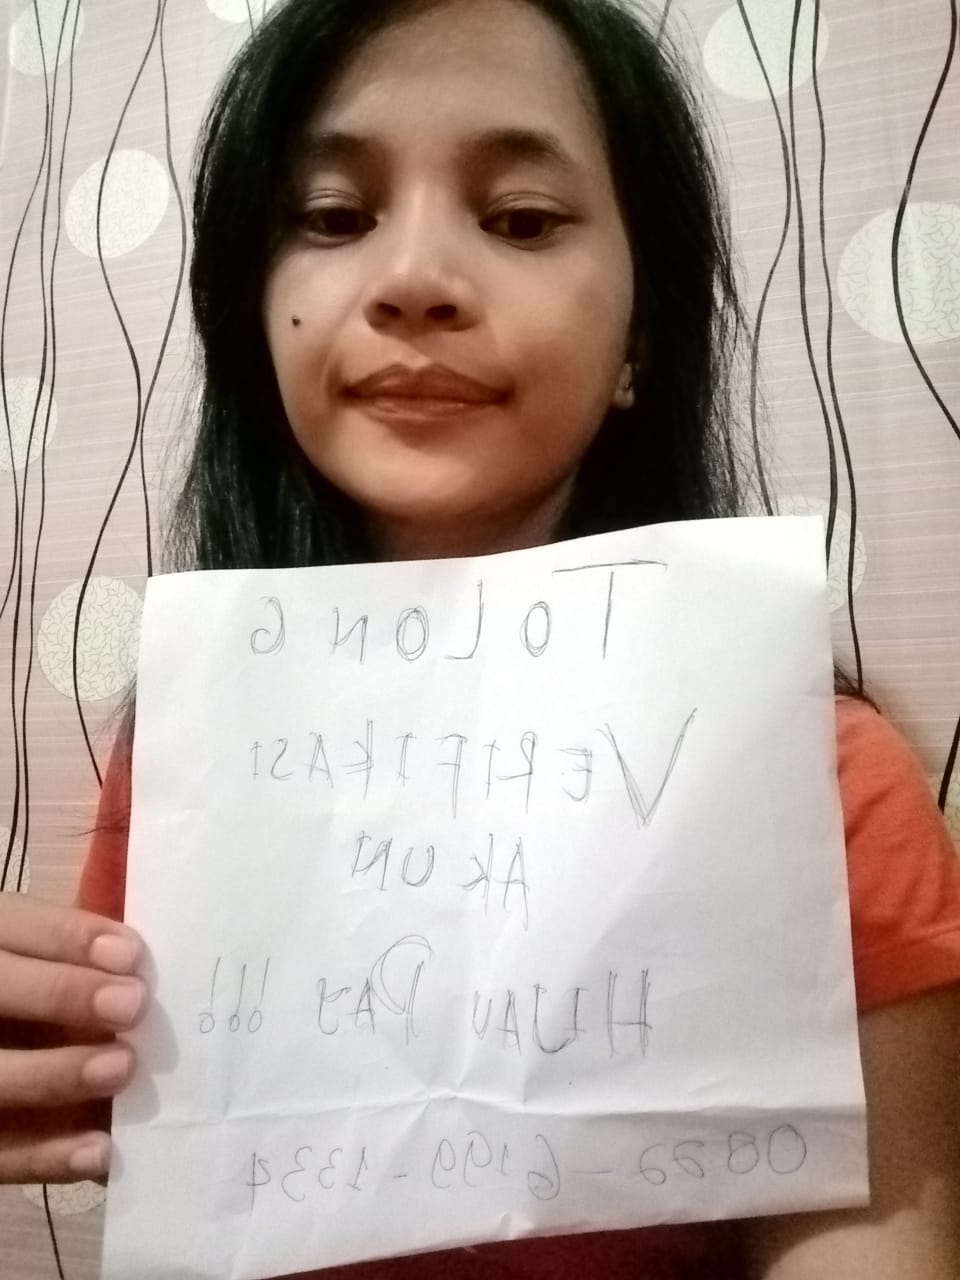 TOLONG
VERIFIKASI
AKUN
HIJAU PAY !!!
0822-6199-1334